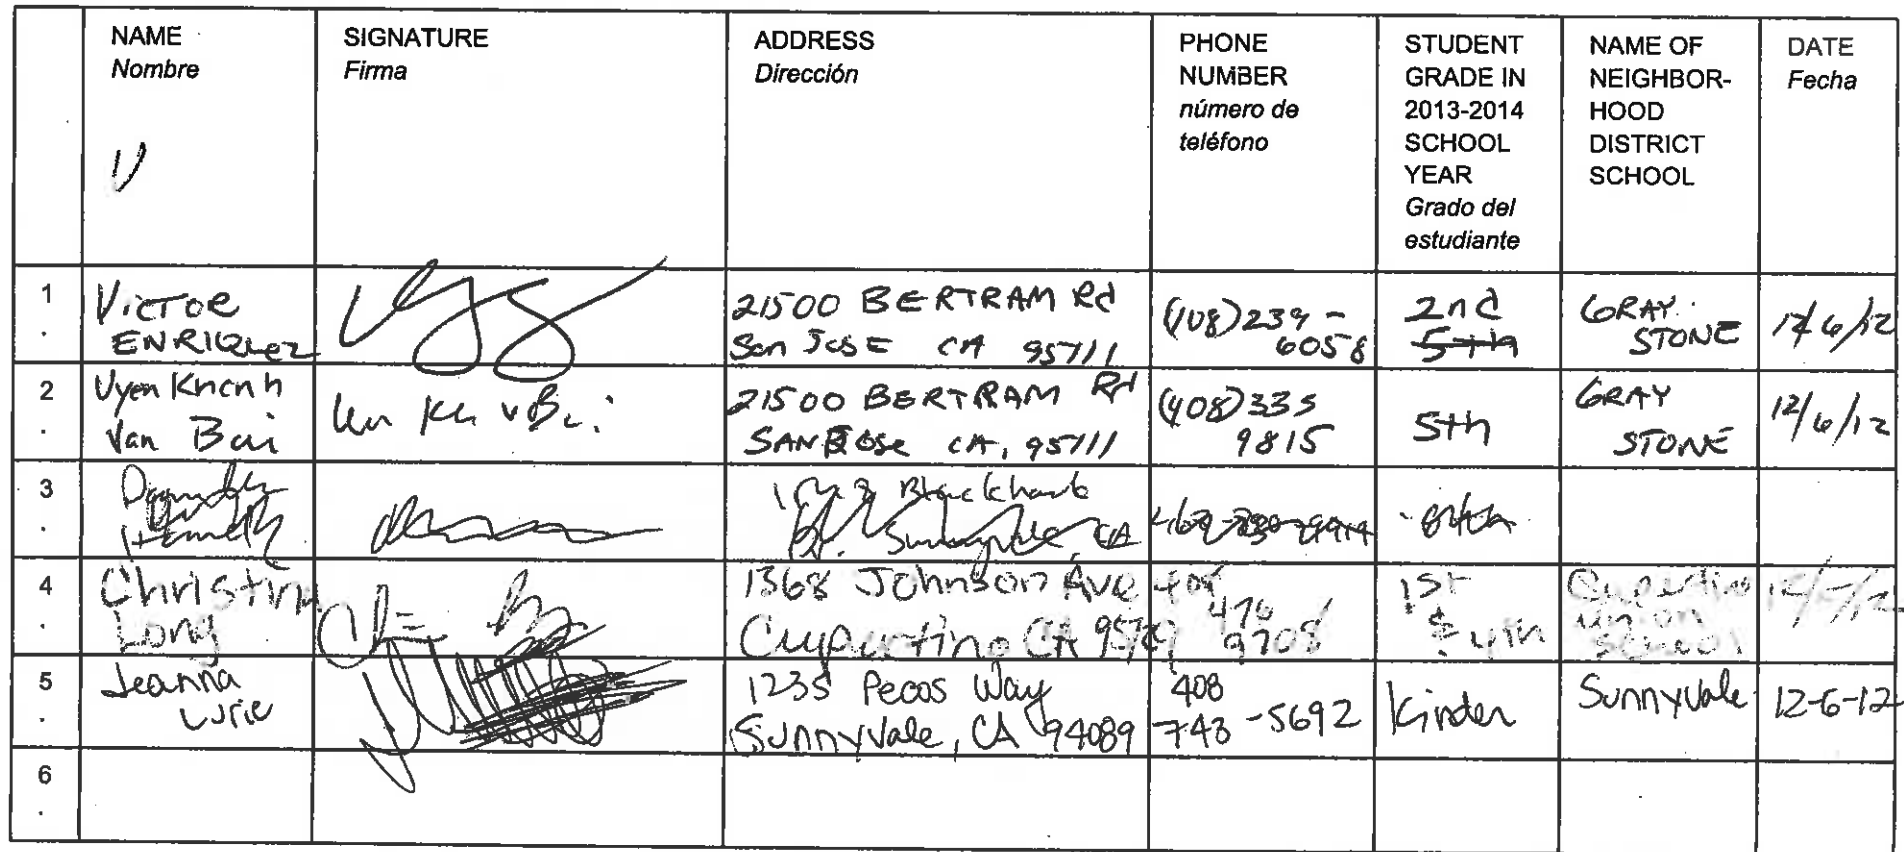 NAME
Nombre
V
SIGNATURE
Firma
ADDRESS
Dirección
PHONE
NUMBER
número de
teléfono
STUDENT
GRADE IN
2013-2014
SCHOOL
YEAR
Grado del
estudiante
NAME OF
NEIGHBOR-
HOOD
DISTRICT
SCHOOL
DATE
Fecha
1
.
VICTOR
ENRIQuez
21500 BERTRAM Rd
San JOSE CA 95111
(408)239-
6058
2nd
5th
GRAY
STONE
12/6/12
2
.
Uyen Khanh
Van Bui
21500 BERTRAM Rd
SAN JOSE CA, 95111
(408)335
9815
5th
GRAY
STONE
12/6/12
3
.
Sunnyvale, CA
4
.
Christina
Long
1368 Johnson Ave
Cupertino CA
408
476
9708
1st
& 4th
Cupertino
union
school
5
.
Jeanna
Lurie
1235 Pecos Way
Sunnyvale, CA 94089
408
743-5692
Kinder
Sunnyvale
12-6-12
6
.